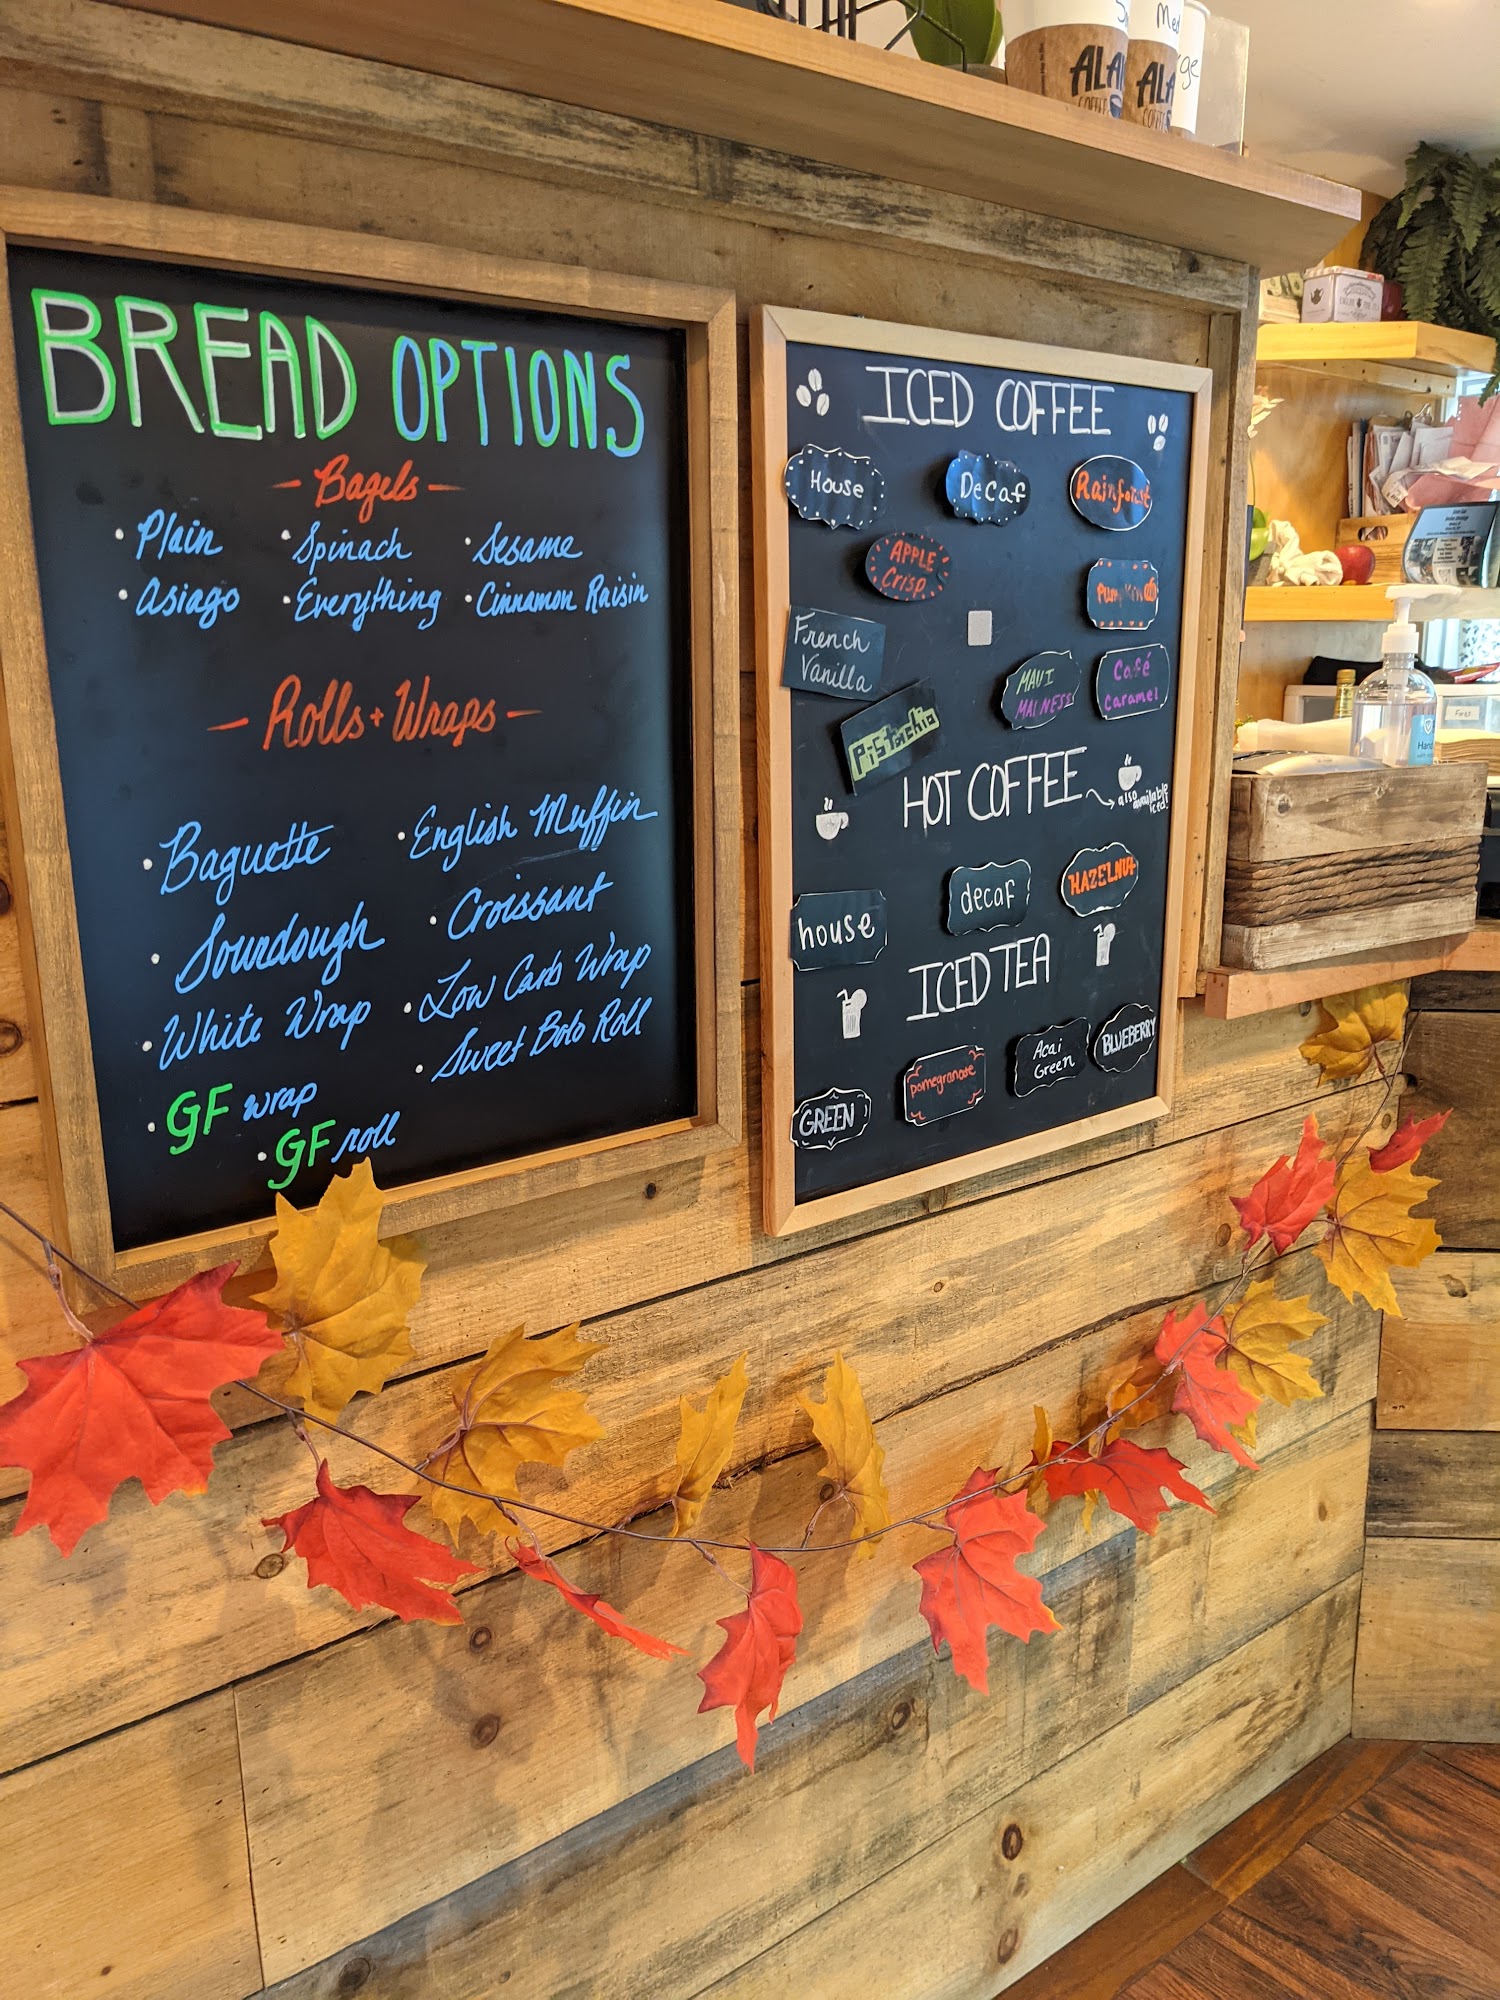 BREAD OPTIONS
- Bagels -
• Plain • Spinach • Sesame
• Asiago • Everything • Cinnamon Raisin
- Rolls + Wraps -
• Baguette • English Muffin
• Sourdough • Croissant
• White Wrap • Low Carb Wrap
• GF wrap • Sweet Bolo Roll
• GF roll
ICED COFFEE
House Decaf Rainforest
APPLE
Crisp
PUMPKIN
French
Vanilla
MAUI
MAINESS
Café
Caramel
Pistachio
HOT COFFEE
also
available
iced!
house decaf HAZELNUT
ICED TEA
GREEN pomegranate
Acai
Green
BLUEBERRY
Med
ALA
COFFEE
ALA
Hand